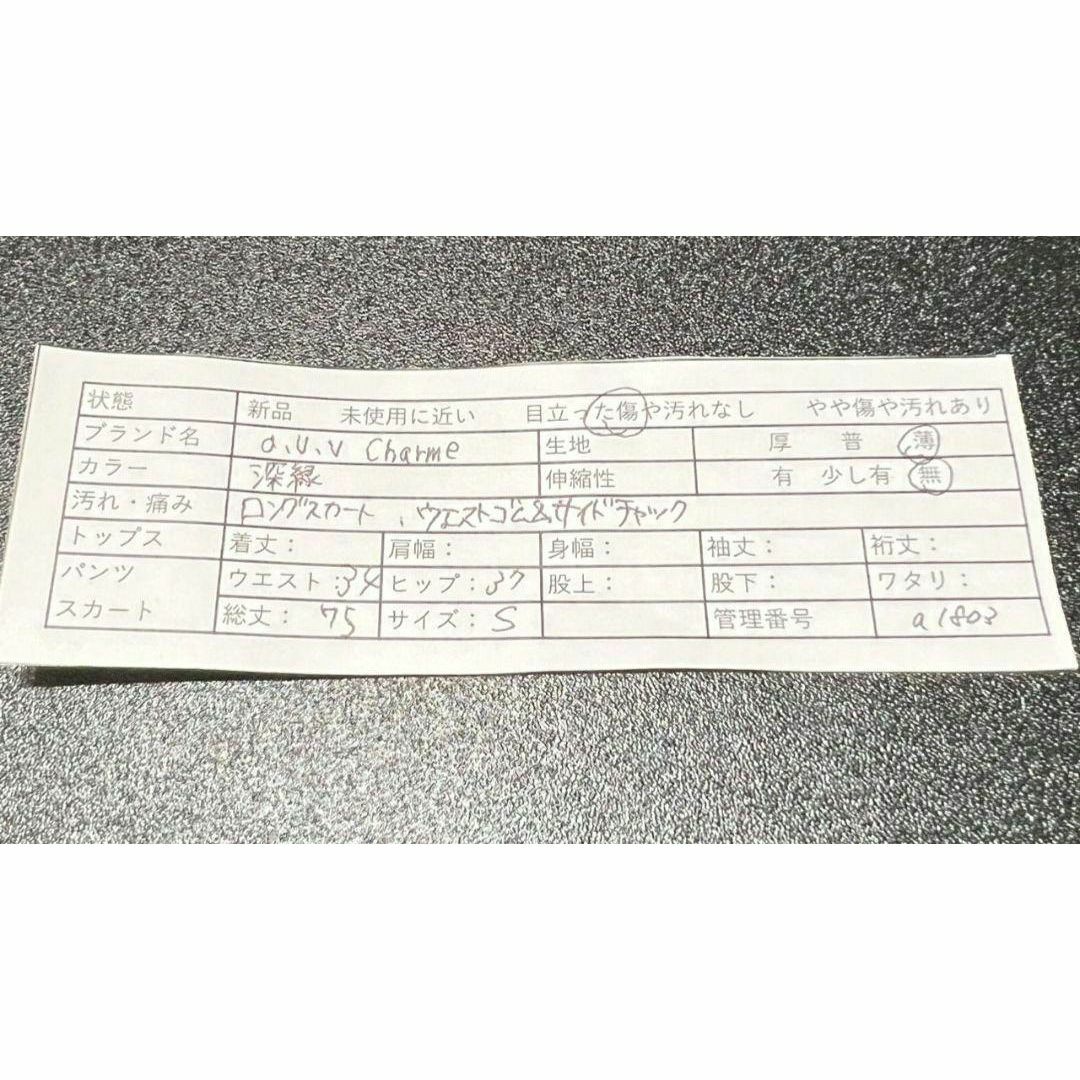 状態 新品 未使用に近い 目立った傷や汚れなし やや傷や汚れあり
ブランド名 a.v.v Charme 生地 厚 普 薄
カラー 深緑 伸縮性 有 少し有 無
汚れ・痛み ロングスカート、ウエストゴム&サイドチャック
トップス 着丈: 肩幅: 身幅: 袖丈: 裄丈:
パンツ ウエスト:34 ヒップ:37 股上: 股下: ワタリ:
スカート 総丈:75 サイズ:S 管理番号 a1803